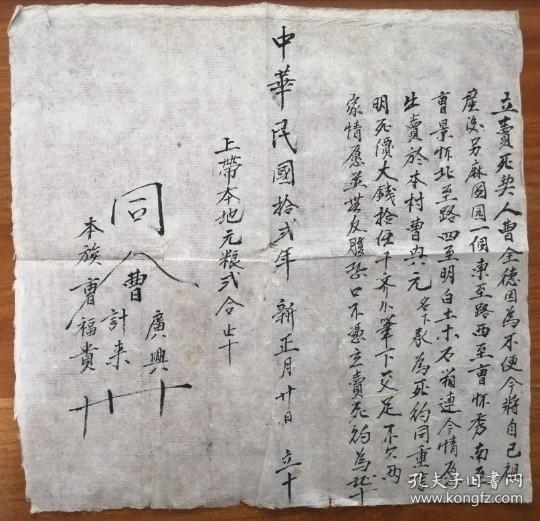 立賣死契人曹全德因為不便今將自己祖
產汝另麻囤园一個東至路西至曹怀秀南至
曹景怀北至路四至明白土木石相連今情愿
出賣於本村曹 元名下永為死約同重
明死價大錢拾伍千齐尓筆下交足不欠两
家情愿並無反悔恐口不憑立賣死約為証十
中華民國拾弍年 新正月廿日 立十
上帶本地元粮弍合止十
同人
曹廣興十
計来
本族曹福貴十
孔夫子旧书网
www.kongfz.com